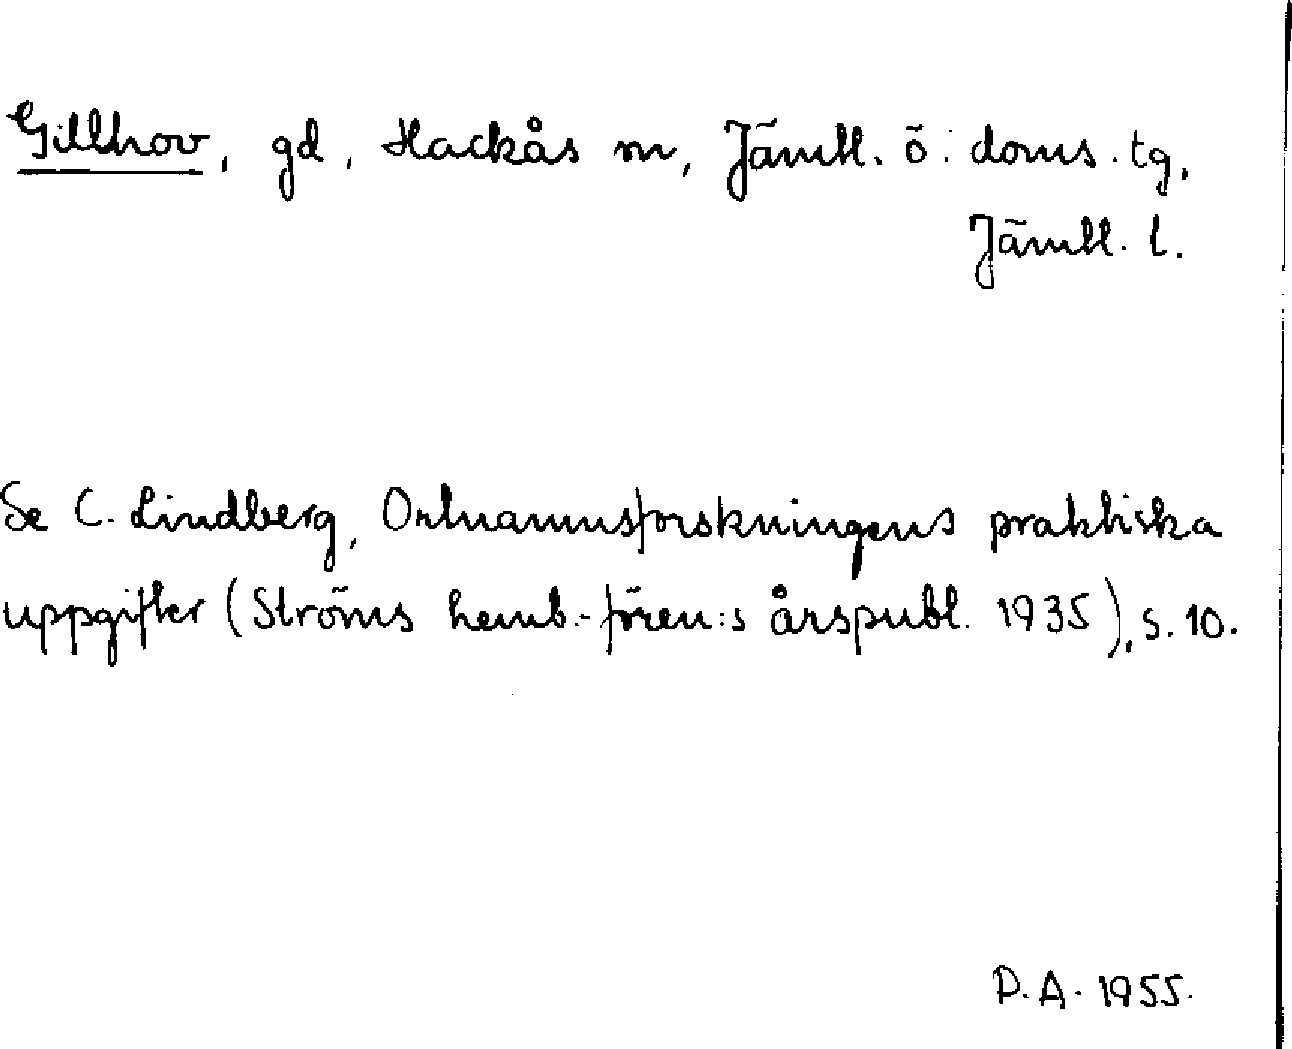 Gillhov, gd, Hackås sn, Jämtl. ö. doms. tg,
Jämtl. l.
Se C. Lindberg, Ortnamnsforskningens praktiska
uppgifter (Ströms hemb.-fören:s årspubl. 1935), s. 10.
D. A. 1955.